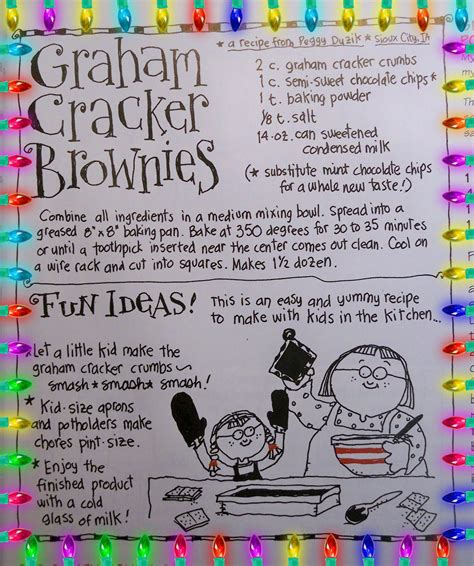 Graham
Cracker
Brownies
* a recipe from Peggy Duzik * Sioux City, IA
2 c. graham cracker crumbs
1 c. semi-sweet chocolate chips*
1 t. baking powder
1/8 t. salt
14-oz. can sweetened
condensed milk
(* substitute mint chocolate chips
for a whole new taste!)
Combine all ingredients in a medium mixing bowl. Spread into a
greased 8"x8" baking pan. Bake at 350 degrees for 30 to 35 minutes
or until a toothpick inserted near the center comes out clean. Cool on
a wire rack and cut into squares. Makes 1½ dozen.
Fun Ideas!
This is an easy and yummy recipe
to make with kids in the kitchen...
*Let a little kid make the
graham cracker crumbs ~
smash * smash * smash!
* Kid-size aprons
and potholders make
chores pint-size.
* Enjoy the
finished product
with a cold
glass of milk!